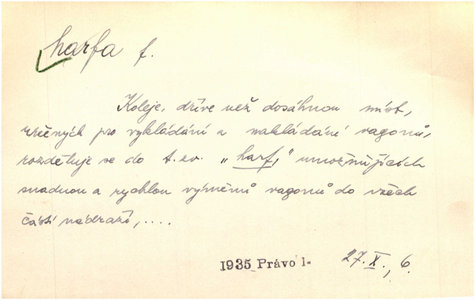 harfa f.
Koleje, dříve než dosáhnou míst,
určených pro vykládání a nakládání vagonů,
rozdětuje se do t. zv. „harf," umožňujících
snadnou a rychlou výměnu vagonů do všech
částí nádraží, ....
1935 Právo l-
27. X., 6.